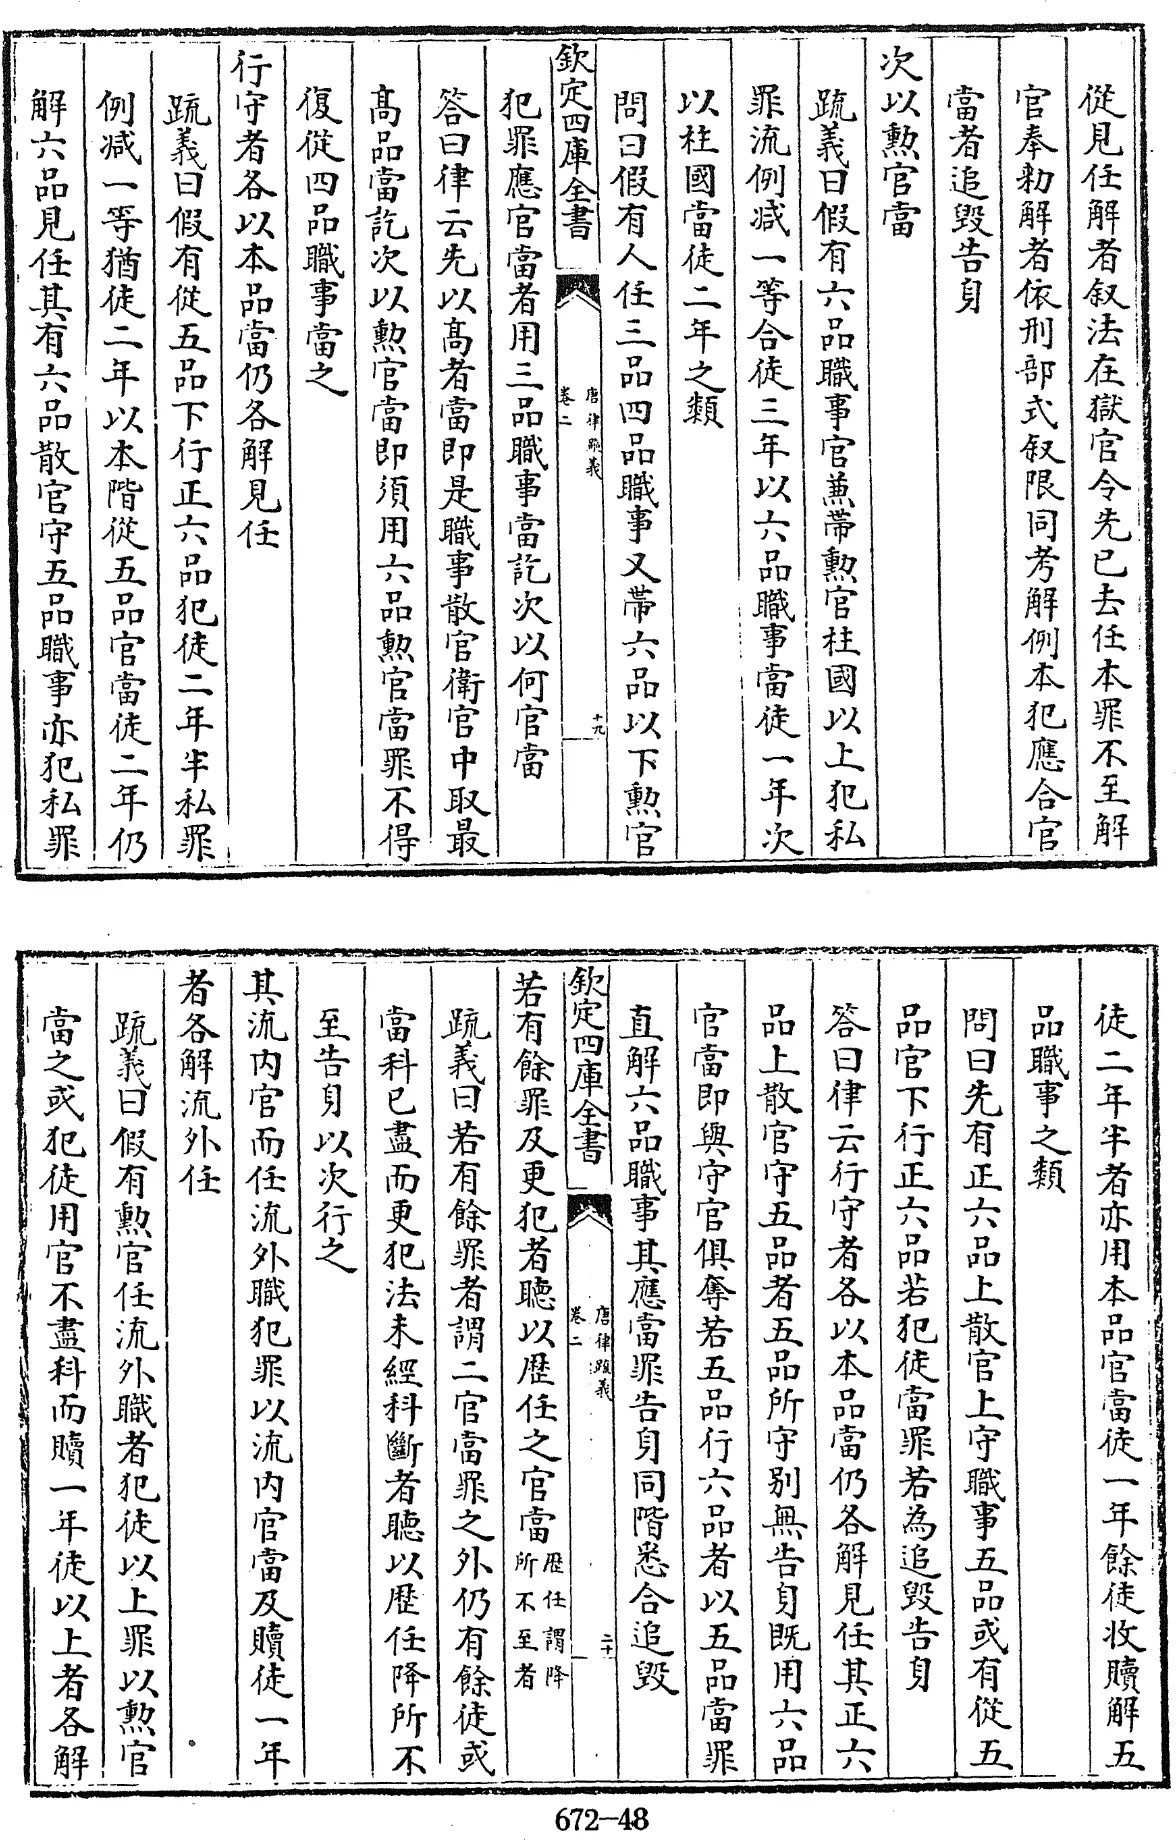 從見任解者叙法在獄官令先已去任本罪不至解
官奉勑解者依刑部式叙限同考解例本犯應合官
當者追毀告身
次以勲官當
疏義曰假有六品職事官兼帶勲官柱國以上犯私
罪流例减一等合徒三年以六品職事當徒一年次
以柱國當徒二年之類
問曰假有人任三品四品職事又帶六品以下勲官
犯罪應官當者用三品職事當訖次以何官當
欽定四庫全書
唐律疏義
卷二
十九
答曰律云先以髙者當即是職事散官衛官中取最
髙品當訖次以勲官當即須用六品勲官當罪不得
復從四品職事當之
行守者各以本品當仍各解見任
疏義曰假有從五品下行正六品犯徒二年半私罪
例减一等猶徒二年以本階從五品官當徒二年仍
解六品見任其有六品散官守五品職事亦犯私罪
徒二年半者亦用本品官當徒一年餘徒收贖解五
品職事之類
問曰先有正六品上散官上守職事五品或有從五
品官下行正六品若犯徒當罪若為追毀告身
答曰律云行守者各以本品當仍各解見任其正六
品上散官守五品者五品所守别無告身既用六品
官當即與守官俱奪若五品行六品者以五品當罪
直解六品職事其應當罪告身同階悉合追毀
欽定四庫全書
唐律疏義
卷二
二十
若有餘罪及更犯者聽以歴任之官當歴任謂降所不至者
疏義曰若有餘罪者謂二官當罪之外仍有餘徒或
當科已盡而更犯法未經科斷者聽以歴任降所不
至告身以次行之
其流内官而任流外職犯罪以流内官當及贖徒一年
者各解流外任
疏義曰假有勲官任流外職者犯徒以上罪以勲官
當之或犯徒用官不盡科而贖一年徒以上者各解
672-48